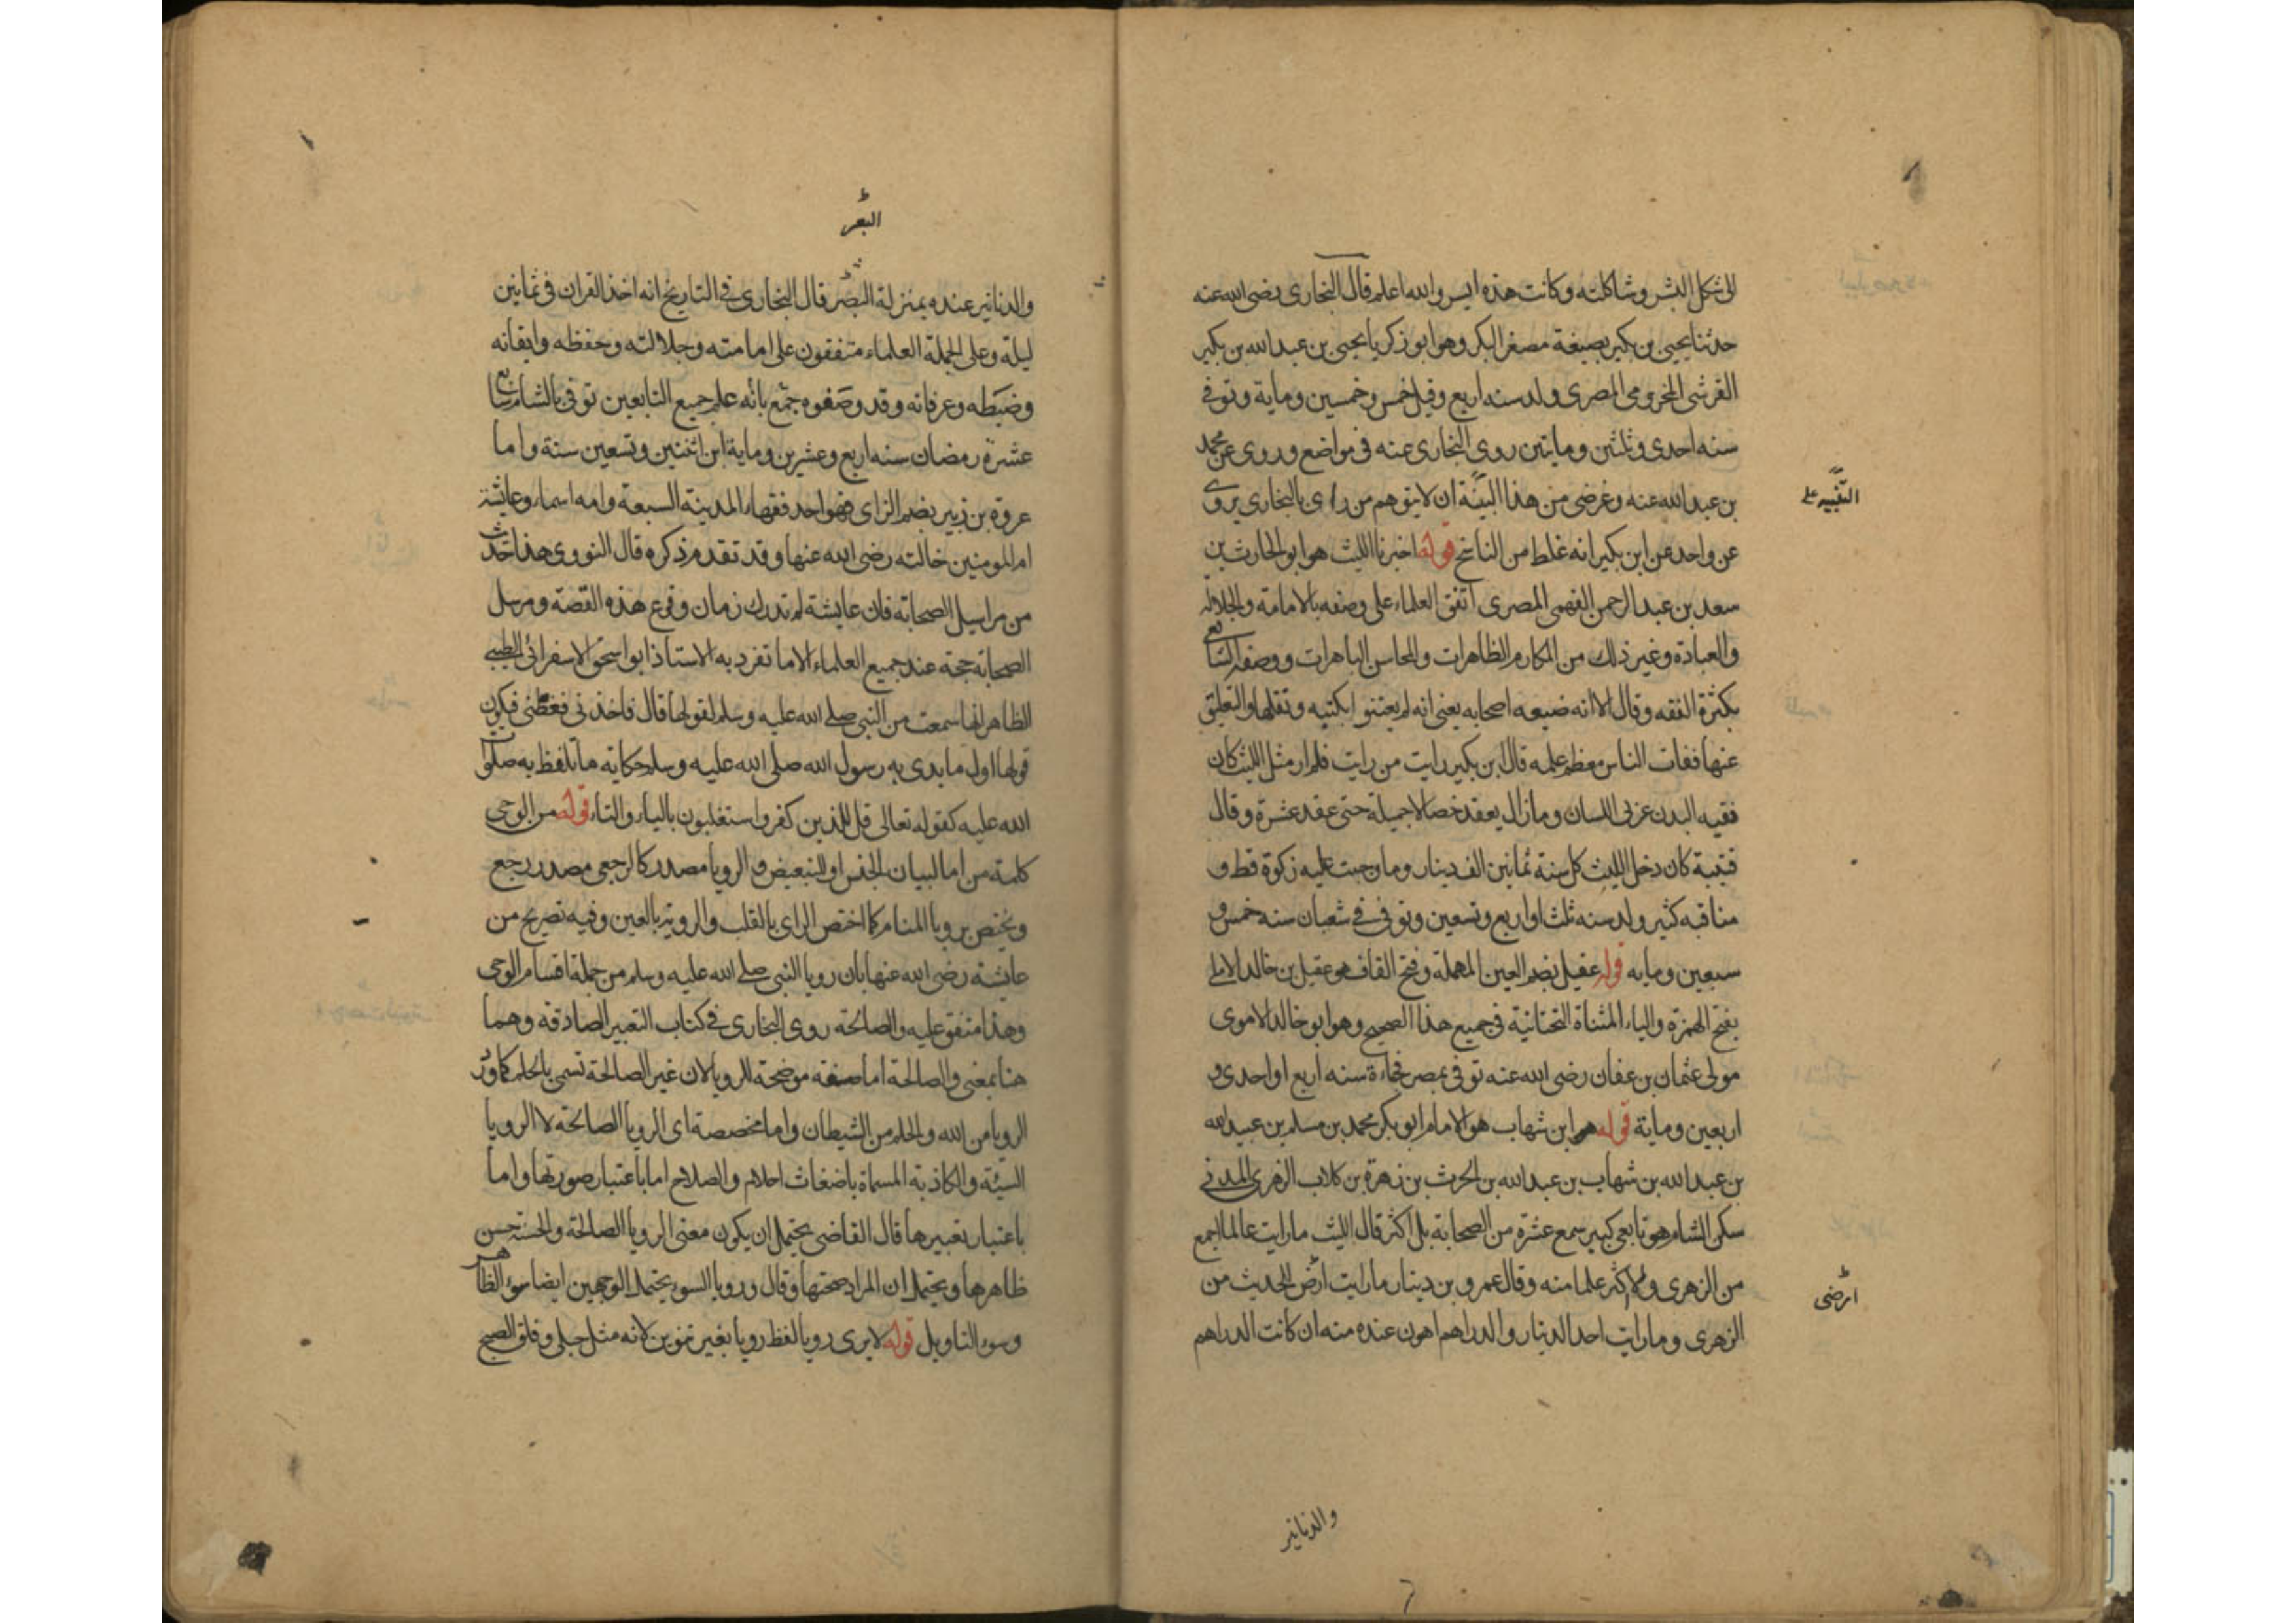 الى شكل البشر وشاكلته وكانت هذه ايس والله اعلم قال البخاري رضى الله عنه
حدثنا يحيى بن بكير بصيغة مصغر البكر وهو ابو زكريا يحيى بن عبد الله بن بكير
القرشى المخزومى المصرى ولد سنه اربع وقيل خمس وخمسين وماية وتوفى
سنه احدى وثلثين وماتين روى البخارى عنه فى مواضع وروى عن محمد
بن عبد الله عنه وغرضى من هذا البينة ان لا يتوهم من راى بالبخارى يروى
التنبيه على
عن واحد عن ابن بكير انه غلط من الناسخ قوله اخبرنا الليث هو ابو الحارث بن
سعد بن عبد الرحمن الفهمى المصرى اتفق العلماء على وصفه بالامامة والجلالة
والعبادة وغير ذلك من المكارم الظاهرات والمحاسن الباهرات ووصفه الشافعى
بكثرة الفقه وقال الا انه ضيعه اصحابه يعنى انه لم يعتنوا بكتبه ونقلها والتعليق
عنها ففات الناس معظم علمه قال ابن بكير رايت من رايت فلم ار مثل الليث كان
فقيه البدن عربى اللسان وما زال يعقد خصالا جميلة حتى عقد عشرة وقال
قتيبة كان دخل الليث كل سنة ثمانين الف دينار وما وجبت عليه زكوة قط و
مناقبه كثير ولد سنه ثلث او اربع وتسعين وتوفى فى شعبان سنه خمس و
سبعين ومايه قوله عقيل بضم العين المهملة وفتح القاف هو عقيل بن خالد الايلى
بفتح الهمزة والياء المثناة التحتانية فى جميع هذا الصحيح وهو ابو خالد الاموى
مولى عثمان بن عفان رضى الله عنه توفى بمصر فجاءة سنه اربع او احدى و
اربعين وماية قوله هو ابن شهاب هو الامام ابو بكر محمد بن مسلم بن عبيد الله
بن عبد الله بن شهاب بن عبد الله بن الحرث بن زهرة بن كلاب الزهرى المدنى
سكن الشام هو تابعى كبير سمع عشرة من الصحابة بل اكثر قال الليث ما رايت عالما اجمع
من الزهرى ولا اكثر علما منه وقال عمرو بن دينار ما رايت ارض الحديث من
ارضى
الزهرى وما رايت احد الدينار والدراهم اهون عنده منه ان كانت الدراهم
والدنانير
البعر
والدنانير عنده بمنزلة البصر قال البخارى فى التاريخ انه اخذ القران فى ثمانين
ليلة وعلى الجملة العلماء متفقون على امامته وجلالته وحفظه واتقانه
وضبطه وعرفانه وقد وصفوه جمع بانه علم جميع التابعين توفى بالشام سابع
عشرة رمضان سنه اربع وعشرين وماية ابن اثنتين وتسعين سنة واما
عروه بن زبير بضم الزاى فهو احد فقهاء المدينة السبعة وامه اسماء وعائشة
ام المومنين خالته رضى الله عنها وقد تقدم ذكره قال النووى هذا حديث
من مراسيل الصحابة فان عايشة لم تدرك زمان وقوع هذه القصة ومرسل
الصحابة حجة عند جميع العلماء الا ما تفرد به الاستاذ ابو اسحق الاسفرائى الطيبى
الظاهر انها سمعت من النبى صلى الله عليه وسلم لقولها قال فاخذنى فغطنى فيكون
قولها اول ما بدى به رسول الله صلى الله عليه وسلم حكاية ما تلفظ به صلوا
الله عليه كقوله تعالى قل للذين كفروا ستغلبون بالياء والتاء قوله من الوحى
كلمة من اما لبيان الجنس او للتبعيض و الرويا مصدر كالرجعى مصدر رجع
ويختص برويا المنام كما اختص الراى بالقلب والروية بالعين وفيه تصريح من
عايشة رضى الله عنها بان رويا النبى صلى الله عليه وسلم من جملة اقسام الوحى
وهذا متفق عليه والصالحة روى البخارى فى كتاب التعبير الصادقه وهما
هنا بمعنى والصالحة اما صفة موضحة للرويا لان غير الصالحة تسمى بالحلم كما ورد
الرويا من الله والحلم من الشيطان واما مخصصة اى الرويا الصالحة لا الرويا
السيئة والكاذبة المسماة باضغاث احلام والصلاح اما باعتبار صورتها واما
باعتبار تعبيرها قال القاضى يحتمل ان يكون معنى الرويا الصالحة والحسنة حسن
ظاهرها ويحتمل ان المراد صحتها وقال ورويا السوء يحتمل الوجهين ايضا سوء الظاهر
وسوء التاويل قوله لا يرى رويا لفظ رويا بغير تنوين لانه مثل حبلى وفلق الصبح